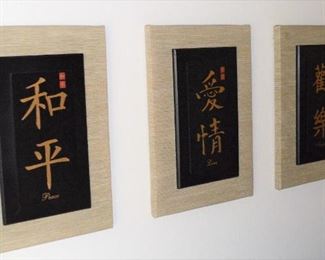 和
平
Peace
愛
情
Love
歡
樂